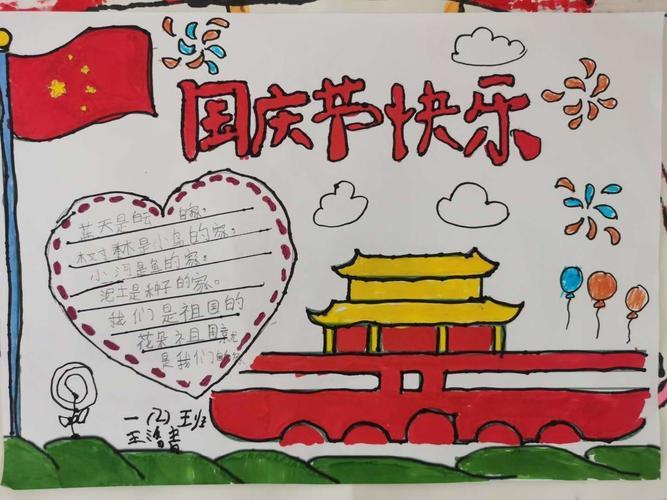 国庆节快乐
蓝天是白云的家，
树林是小鸟的家，
小河是鱼的家，
泥土是种子的家。
我们是祖国的
花朵祖国就
是我们的家
一(2)班
王